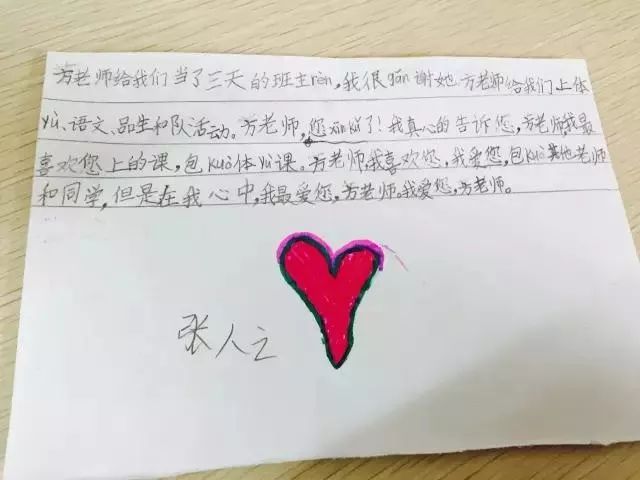 方老师给我们当了三天的班主rèn,我很gǎn谢她.方老师给我们上体
yù、语文、品生和队活动。方老师,您xīn kǔ了!我真心的告诉您,方老师,我最
喜欢您上的课,包kuò体yù课。方老师,我喜欢您,我爱您,包kuò其他老师
和同学,但是在我心中,我最爱您,方老师。我爱您,方老师。
张人之